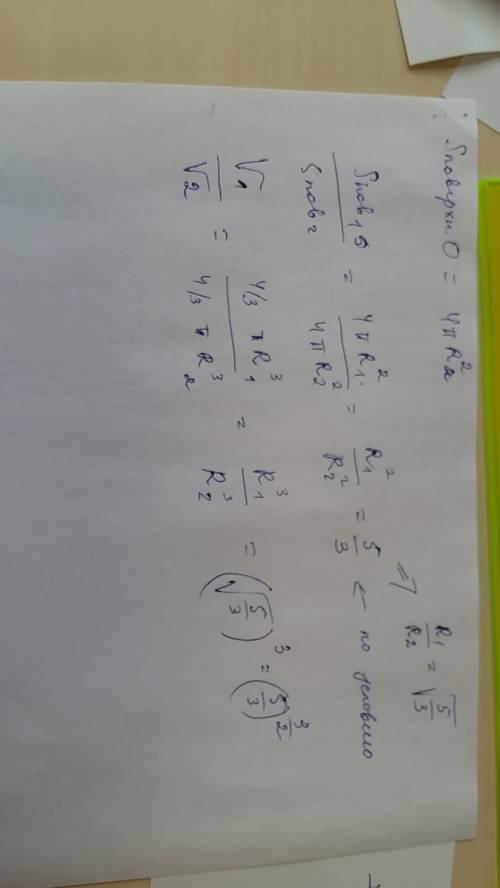 Sповерхн. O = 4πR²
Sпов1 / Sпов2 = 4πR₁² / 4πR₂² = R₁² / R₂² = 5/3 ← по условию
=> R₁/R₂ = √(5/3)
V₁ / V₂ = 4/3 πR₁³ / 4/3 πR₂³ = R₁³ / R₂³ = (√(5/3))³ = (5/3)^(3/2)